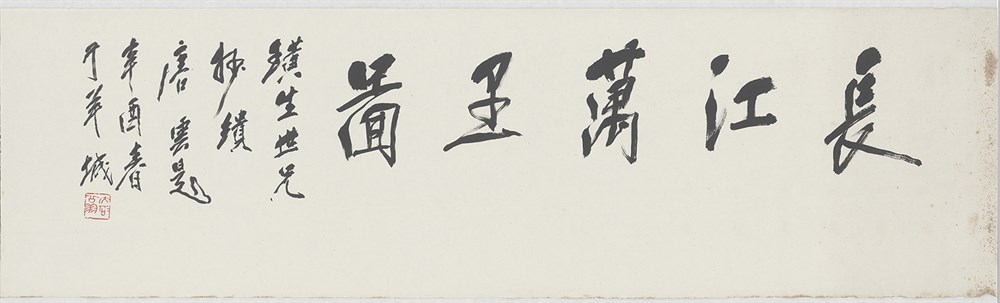 長江萬里圖
璜生世兄
妙繢
唐雲題
辛酉春
于羊城